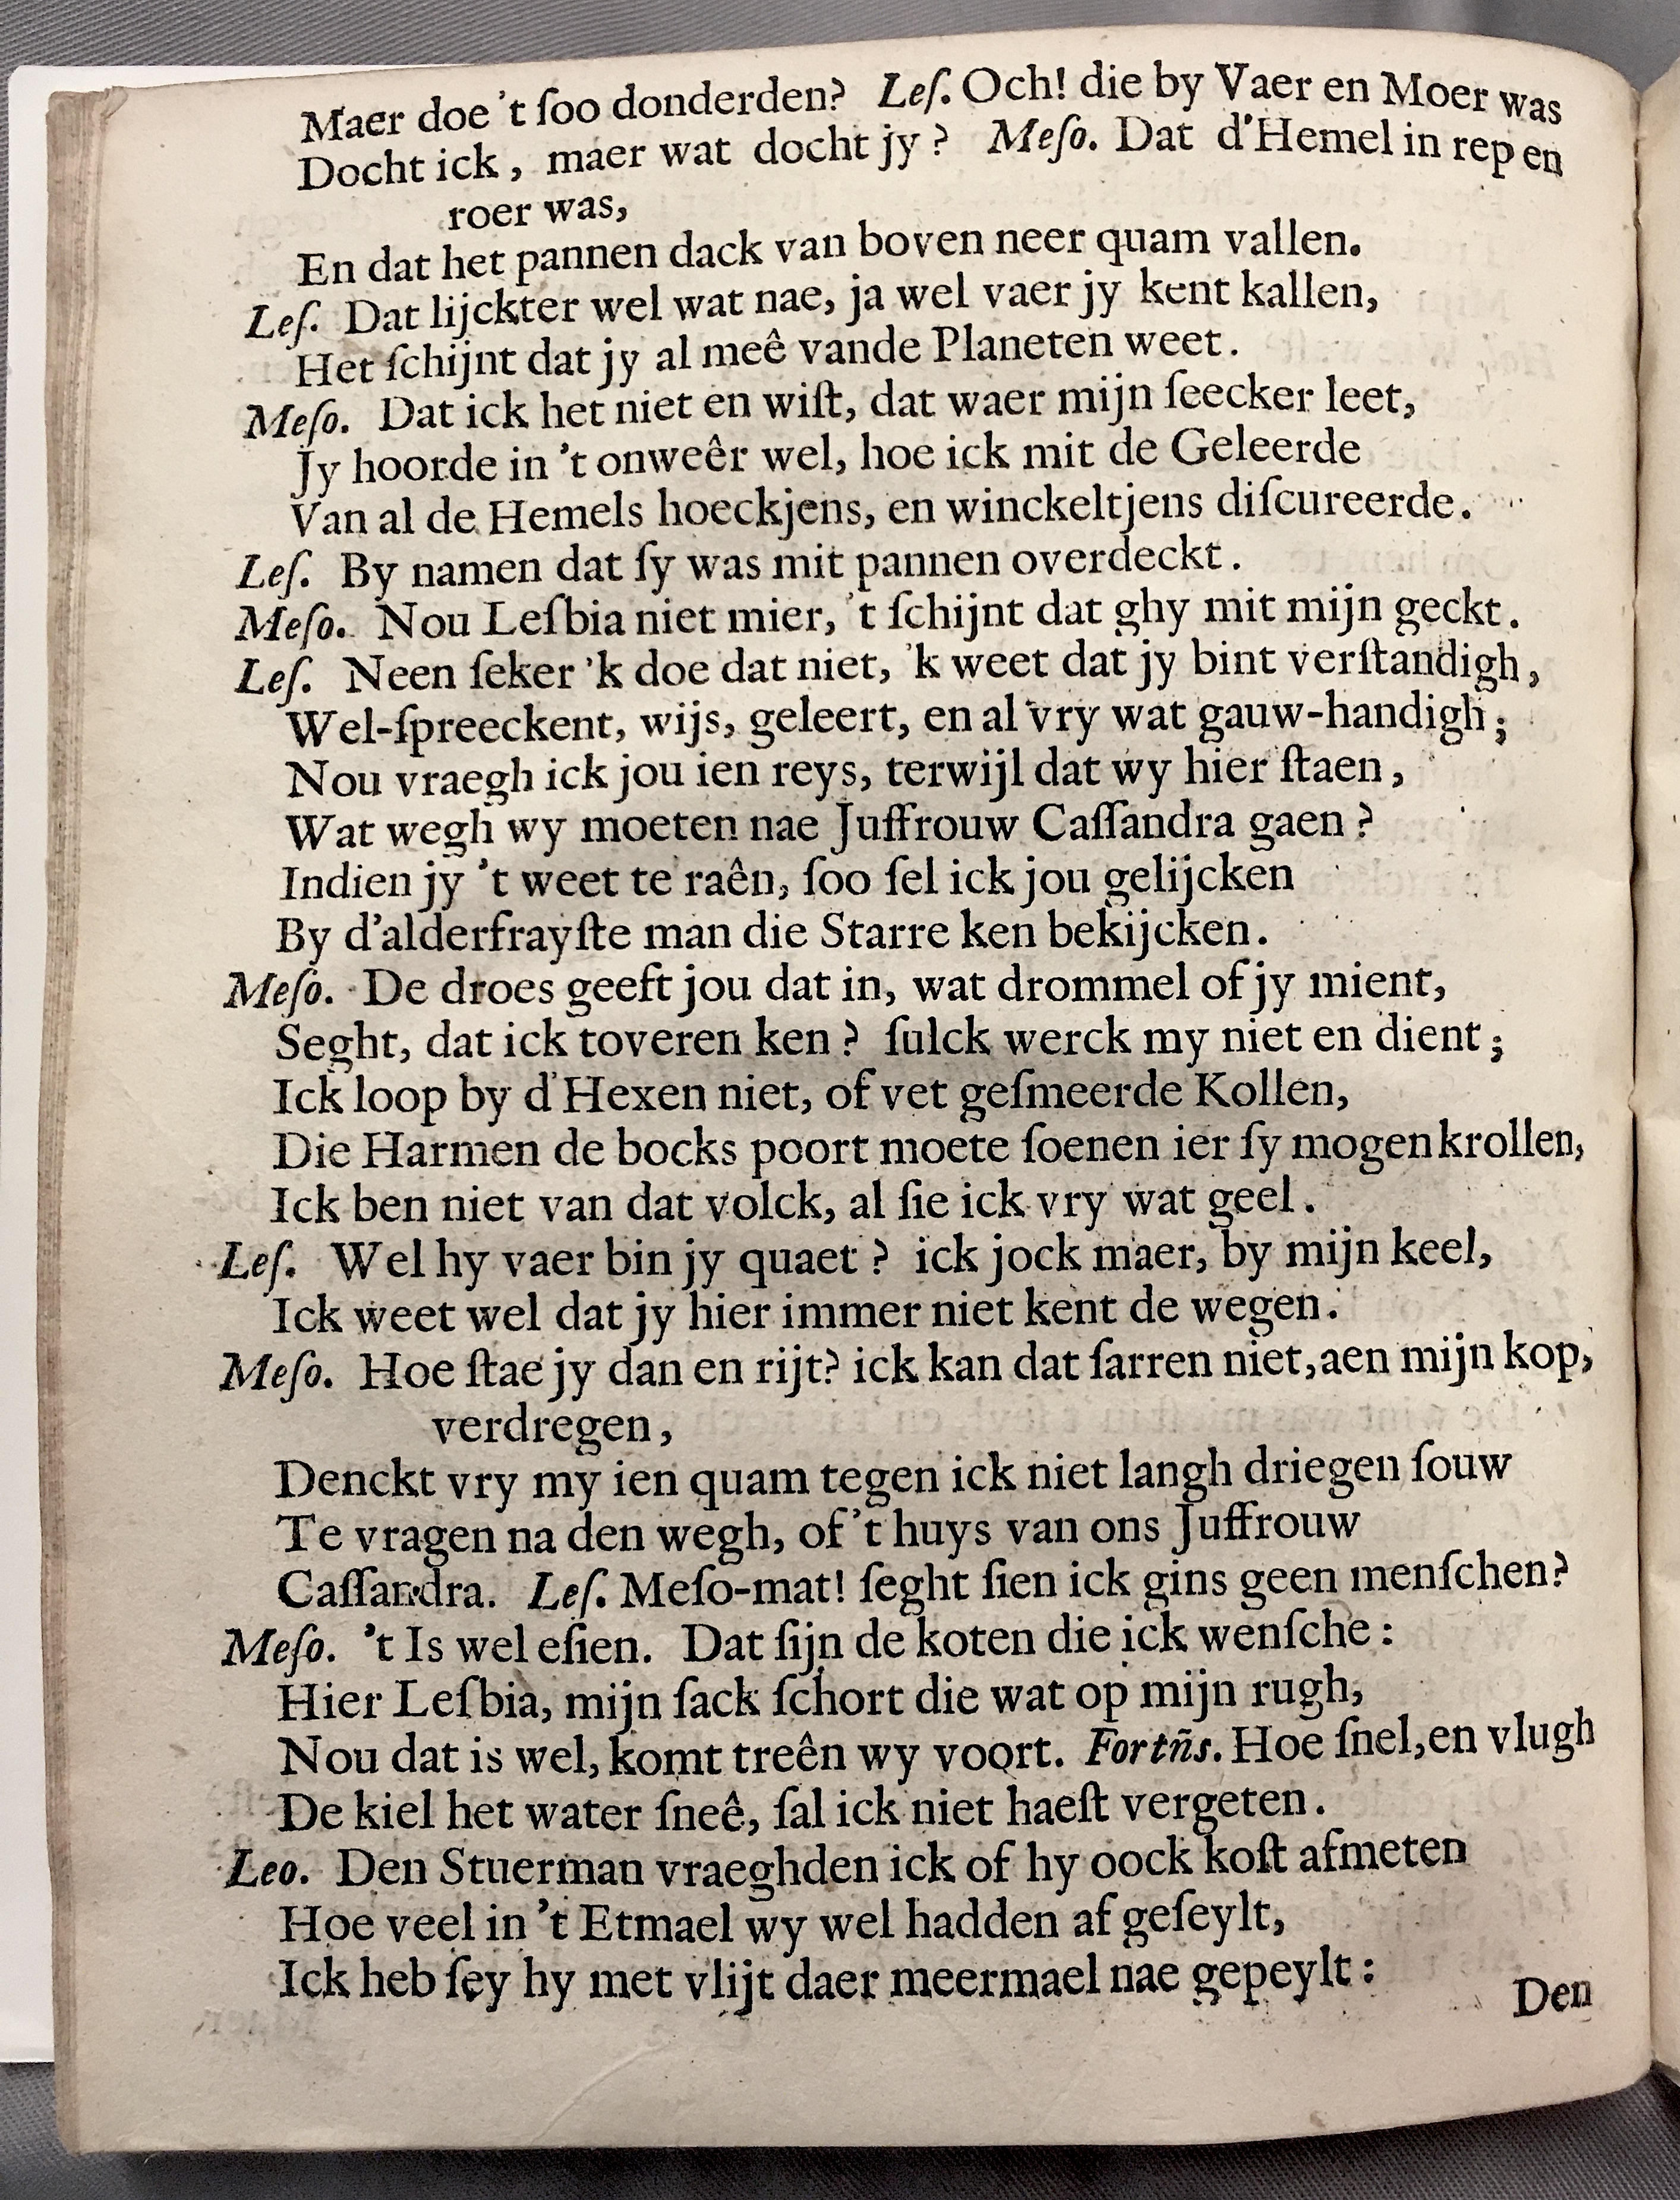 Maer doe 't ſoo donderden? Leſ. Och! die by Vaer en Moer was
Docht ick, maer wat docht jy? Meſo. Dat d'Hemel in rep en
roer was,
En dat het pannen dack van boven neer quam vallen.
Leſ. Dat lijckter wel wat nae, ja wel vaer jy kent kallen,
Het ſchijnt dat jy al meê vande Planeten weet.
Meſo. Dat ick het niet en wiſt, dat waer mijn ſeecker leet,
Jy hoorde in 't onweêr wel, hoe ick mit de Geleerde
Van al de Hemels hoeckjens, en winckeltjens diſcureerde.
Leſ. By namen dat ſy was mit pannen overdeckt.
Meſo. Nou Leſbia niet mier, 't ſchijnt dat ghy mit mijn geckt.
Leſ. Neen ſeker 'k doe dat niet, 'k weet dat jy bint verſtandigh,
Wel-ſpreeckent, wijs, geleert, en al vry wat gauw-handigh;
Nou vraegh ick jou ien reys, terwijl dat wy hier ſtaen,
Wat wegh wy moeten nae Juffrouw Caſſandra gaen?
Indien jy 't weet te raên, ſoo ſel ick jou gelijcken
By d'alderfrayſte man die Starre ken bekijcken.
Meſo. De droes geeft jou dat in, wat drommel of jy mient,
Seght, dat ick toveren ken? ſulck werck my niet en dient;
Ick loop by d'Hexen niet, of vet geſmeerde Kollen,
Die Harmen de bocks poort moete ſoenen ier ſy mogen krollen,
Ick ben niet van dat volck, al ſie ick vry wat geel.
Leſ. Wel hy vaer bin jy quaet? ick jock maer, by mijn keel,
Ick weet wel dat jy hier immer niet kent de wegen.
Meſo. Hoe ſtae jy dan en rijt? ick kan dat ſarren niet, aen mijn kop,
verdregen,
Denckt vry my ien quam tegen ick niet langh driegen ſouw
Te vragen na den wegh, of 't huys van ons Juffrouw
Caſſandra. Leſ. Meſo-mat! ſeght ſien ick gins geen menſchen?
Meſo. 't Is wel eſien. Dat ſijn de koten die ick wenſche:
Hier Leſbia, mijn ſack ſchort die wat op mijn rugh,
Nou dat is wel, komt treên wy voort. Fortñs. Hoe ſnel, en vlugh
De kiel het water ſneê, ſal ick niet haeſt vergeten.
Leo. Den Stuerman vraeghden ick of hy oock koſt afmeten
Hoe veel in 't Etmael wy wel hadden af geſeylt,
Ick heb ſey hy met vlijt daer meermael nae gepeylt:
Den